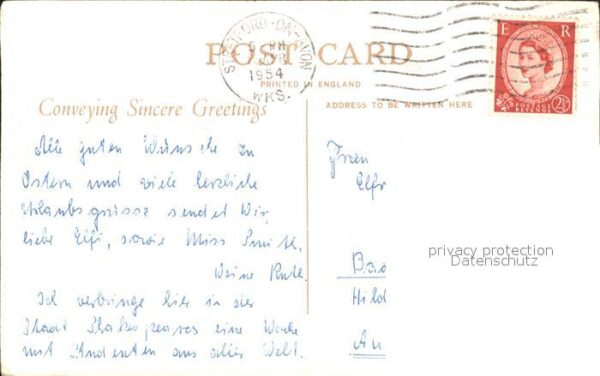 STRATFORD-ON-AVON
6 PM
1954
WKS.
POST CARD
PRINTED IN ENGLAND
E R
POSTAGE REVENUE
2½D
Conveying Sincere Greetings
ADDRESS TO BE WRITTEN HERE
Alle guten Wünsche zu
Ostern und viele herzliche
Urlaubsgrüsse sendet Dir,
liebe Elfi, sowie Miss Smith,
Deine Ruth.
Ich verbringe hier in der
Stadt Shakespeares eine Woche
mit Studenten aus aller Welt.
Elfr
Hild
Au
privacy protection
Datenschutz